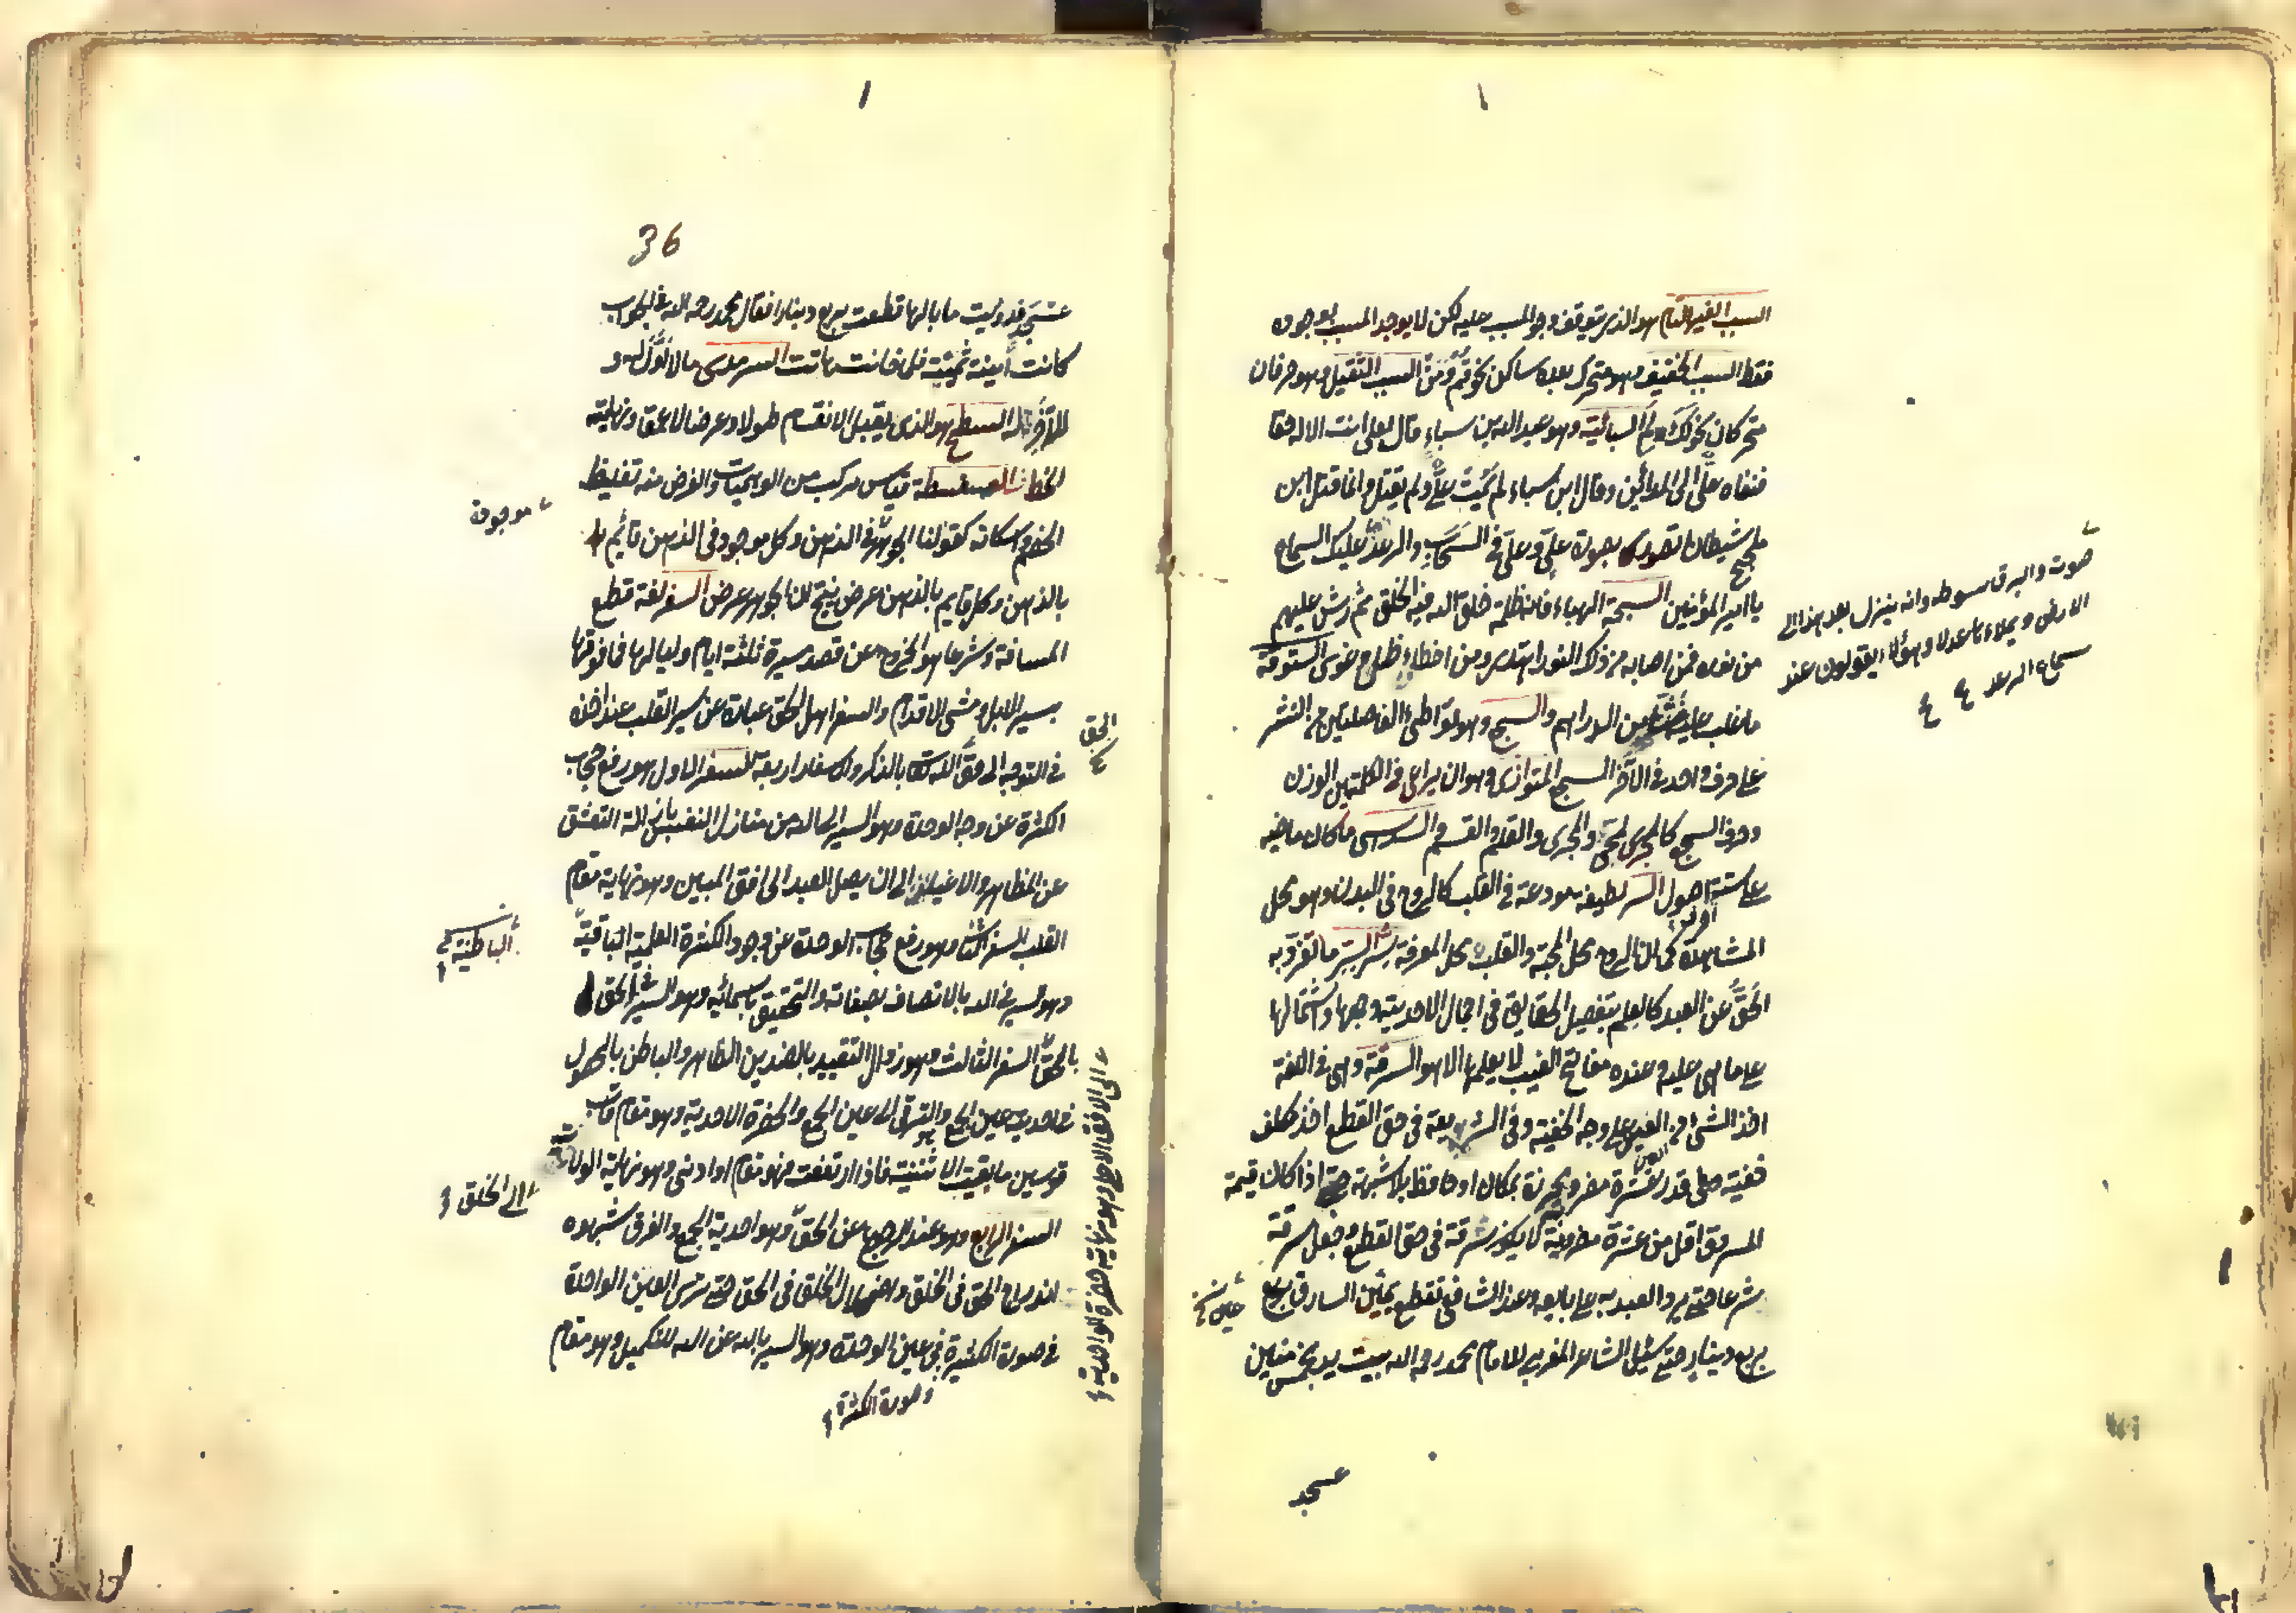 السبب الغير التام هو الذى يتوقف وجود المسبب عليه لكن لا يوجد المسبب بوجوده
فقط السبب الخفيف وهو متحرك بعده ساكن نحو قم ومن السبب الثقيل وهو حرفان
متحركان نحو لك ولم السبائية وهو عبد الله بن سباء قال لعلى انت الاله حقا
فنفاه على الى المدائن وقال ابن سباء لم يمت على ولم يقتل وانما قتل ابن
ملجم شيطانا تصور بصورة على وعلى فى السحاب والرعد عليك السماع
يا امير المؤمنين السبحة الهباء فانه ظلمة خلق الله فيه الخلق ثم رش عليهم
من نوره فمن اصابه من ذلك النور اهتدى ومن اخطاء ضل وغوى الستوقة
ما غلب عليه غشه من الدراهم السجع وهو تواطئ الفاصلتين من النثر
على حرف واحد فى الآخر السجع المتوازى وهو ان يراعى فى الكلمتين الوزن
وحرف السجع كالمحيى والمجرى والقلم والقسم السداسى ما كان ماضيه
على ستة احرف اصول السر لطيفة مودعة فى القلب كالروح فى البدن وهو محل
المشاهدة كما ان الروح محل المحبة والقلب محل المعرفة سر السر ما تفرد به
الحق عن العبد كالعلم بتفصيل الحقايق فى اجمال الاحدية وجمعها واشتمالها
على ما هى عليه وعنده مفاتح الغيب لا يعلمها الا هو السرقة وهى فى اللغة
اخذ الشئ من الغير على وجه الخفية وفى الشريعة فى حق القطع اخذ مكلف
خفية قدر عشرة دراهم مضروبة محرزة بمكان او حافظ بلا شبهة حتى اذا كان قيمة
المسروق اقل من عشرة مضروبة لا يكون سرقة فى حق القطع وجعل سرقة
شرعا حتى يرد العبد به على بايعه وعند الشافعى تقطع يمين السارق بربع
بربع دينار حتى سئل الشاعر المعرى للامام محمد رحمه الله بيت يد بخمس مئين
صوت والبرق سوطه وانه ينزل بعد هذا الى
الارض ويملاءها عدلا وهؤلاء يقولون عند
سماع الرعد
عسجد
36
عسجد فديت ما بالها قطعت بربع دينار فقال محمد رحمه الله فى الجواب
كانت أمينة ثمينة فلما خانت هانت السرمدى ما لا أول له و
لا آخر له السطح هو الذى يقبل الانقسام طولا وعرضا لا عمقا ونهايته
الخط السفسطة قياس مركب من الوهميات والغرض منه تغليط
الخصم واسكاته كقولنا الجوهر فى الذهن وكل موجود فى الذهن قائم
بالذهن وكل قايم بالذهن عرض ينتج ان الجوهر عرض السفر لغة قطع
المسافة وشرعا هو الخروج عن قصد مسيرة ثلثة ايام ولياليها فما فوقها
بسير الابل ومشى الاقدام والسفر اهل الحق عبارة عن سير القلب عند اخذه
فى التوجه الى حق الله بالذكر والاسفار اربعة السفر الاول هو رفع حجاب
الكثرة عن وجه الوحدة وهو السير الى الله من منازل النفس بازالة التعشق
عن المظاهر والاغيار الى ان يصل العبد الى افق المبين وهو نهاية مقام
القلب السفر الثانى وهو رفع حجاب الوحدة عن وجود الكثرة العلمية الباقية
وهو السير فى الله بالاتصاف بصفاته والتحقيق باسمائه وهو السير فى الحق
بالحق السفر الثالث وهو زوال التقييد بالضدين الظاهر والباطن بالحصول
فى احدية عين الجمع والترقى الى عين الجمع والحضرة الاحدية وهو مقام قاب
قوسين ما بقيت الاثنينية فاذا ارتفعت فهو مقام او ادنى وهو نهاية الولاية
السفر الرابع وهو عند الرجوع عن الحق وهو احدية الجمع والفرق شهوده
اندراج الحق فى الخلق واضمحلال الخلق فى الحق حتى يرى العين الواحدة
فى صورة الكثيرة فى عين الوحدة وهو السير بالله عن الله للتكميل وهو مقام
موجودة
الحق
الباطنية
الى الخلق
وصورة الكثرة